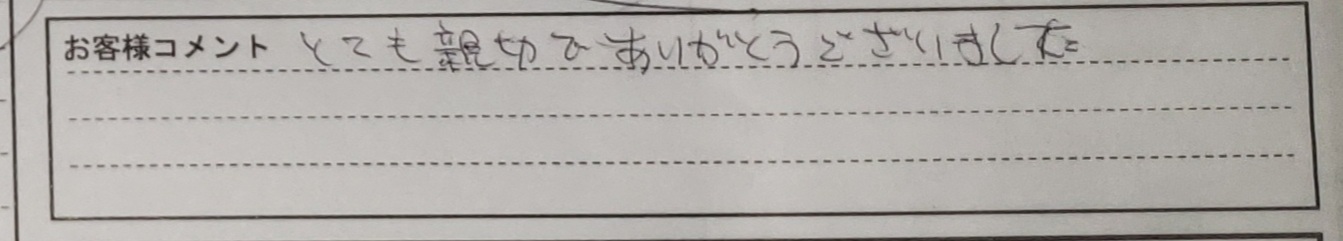 お客様コメント とても親切でありがとうございました